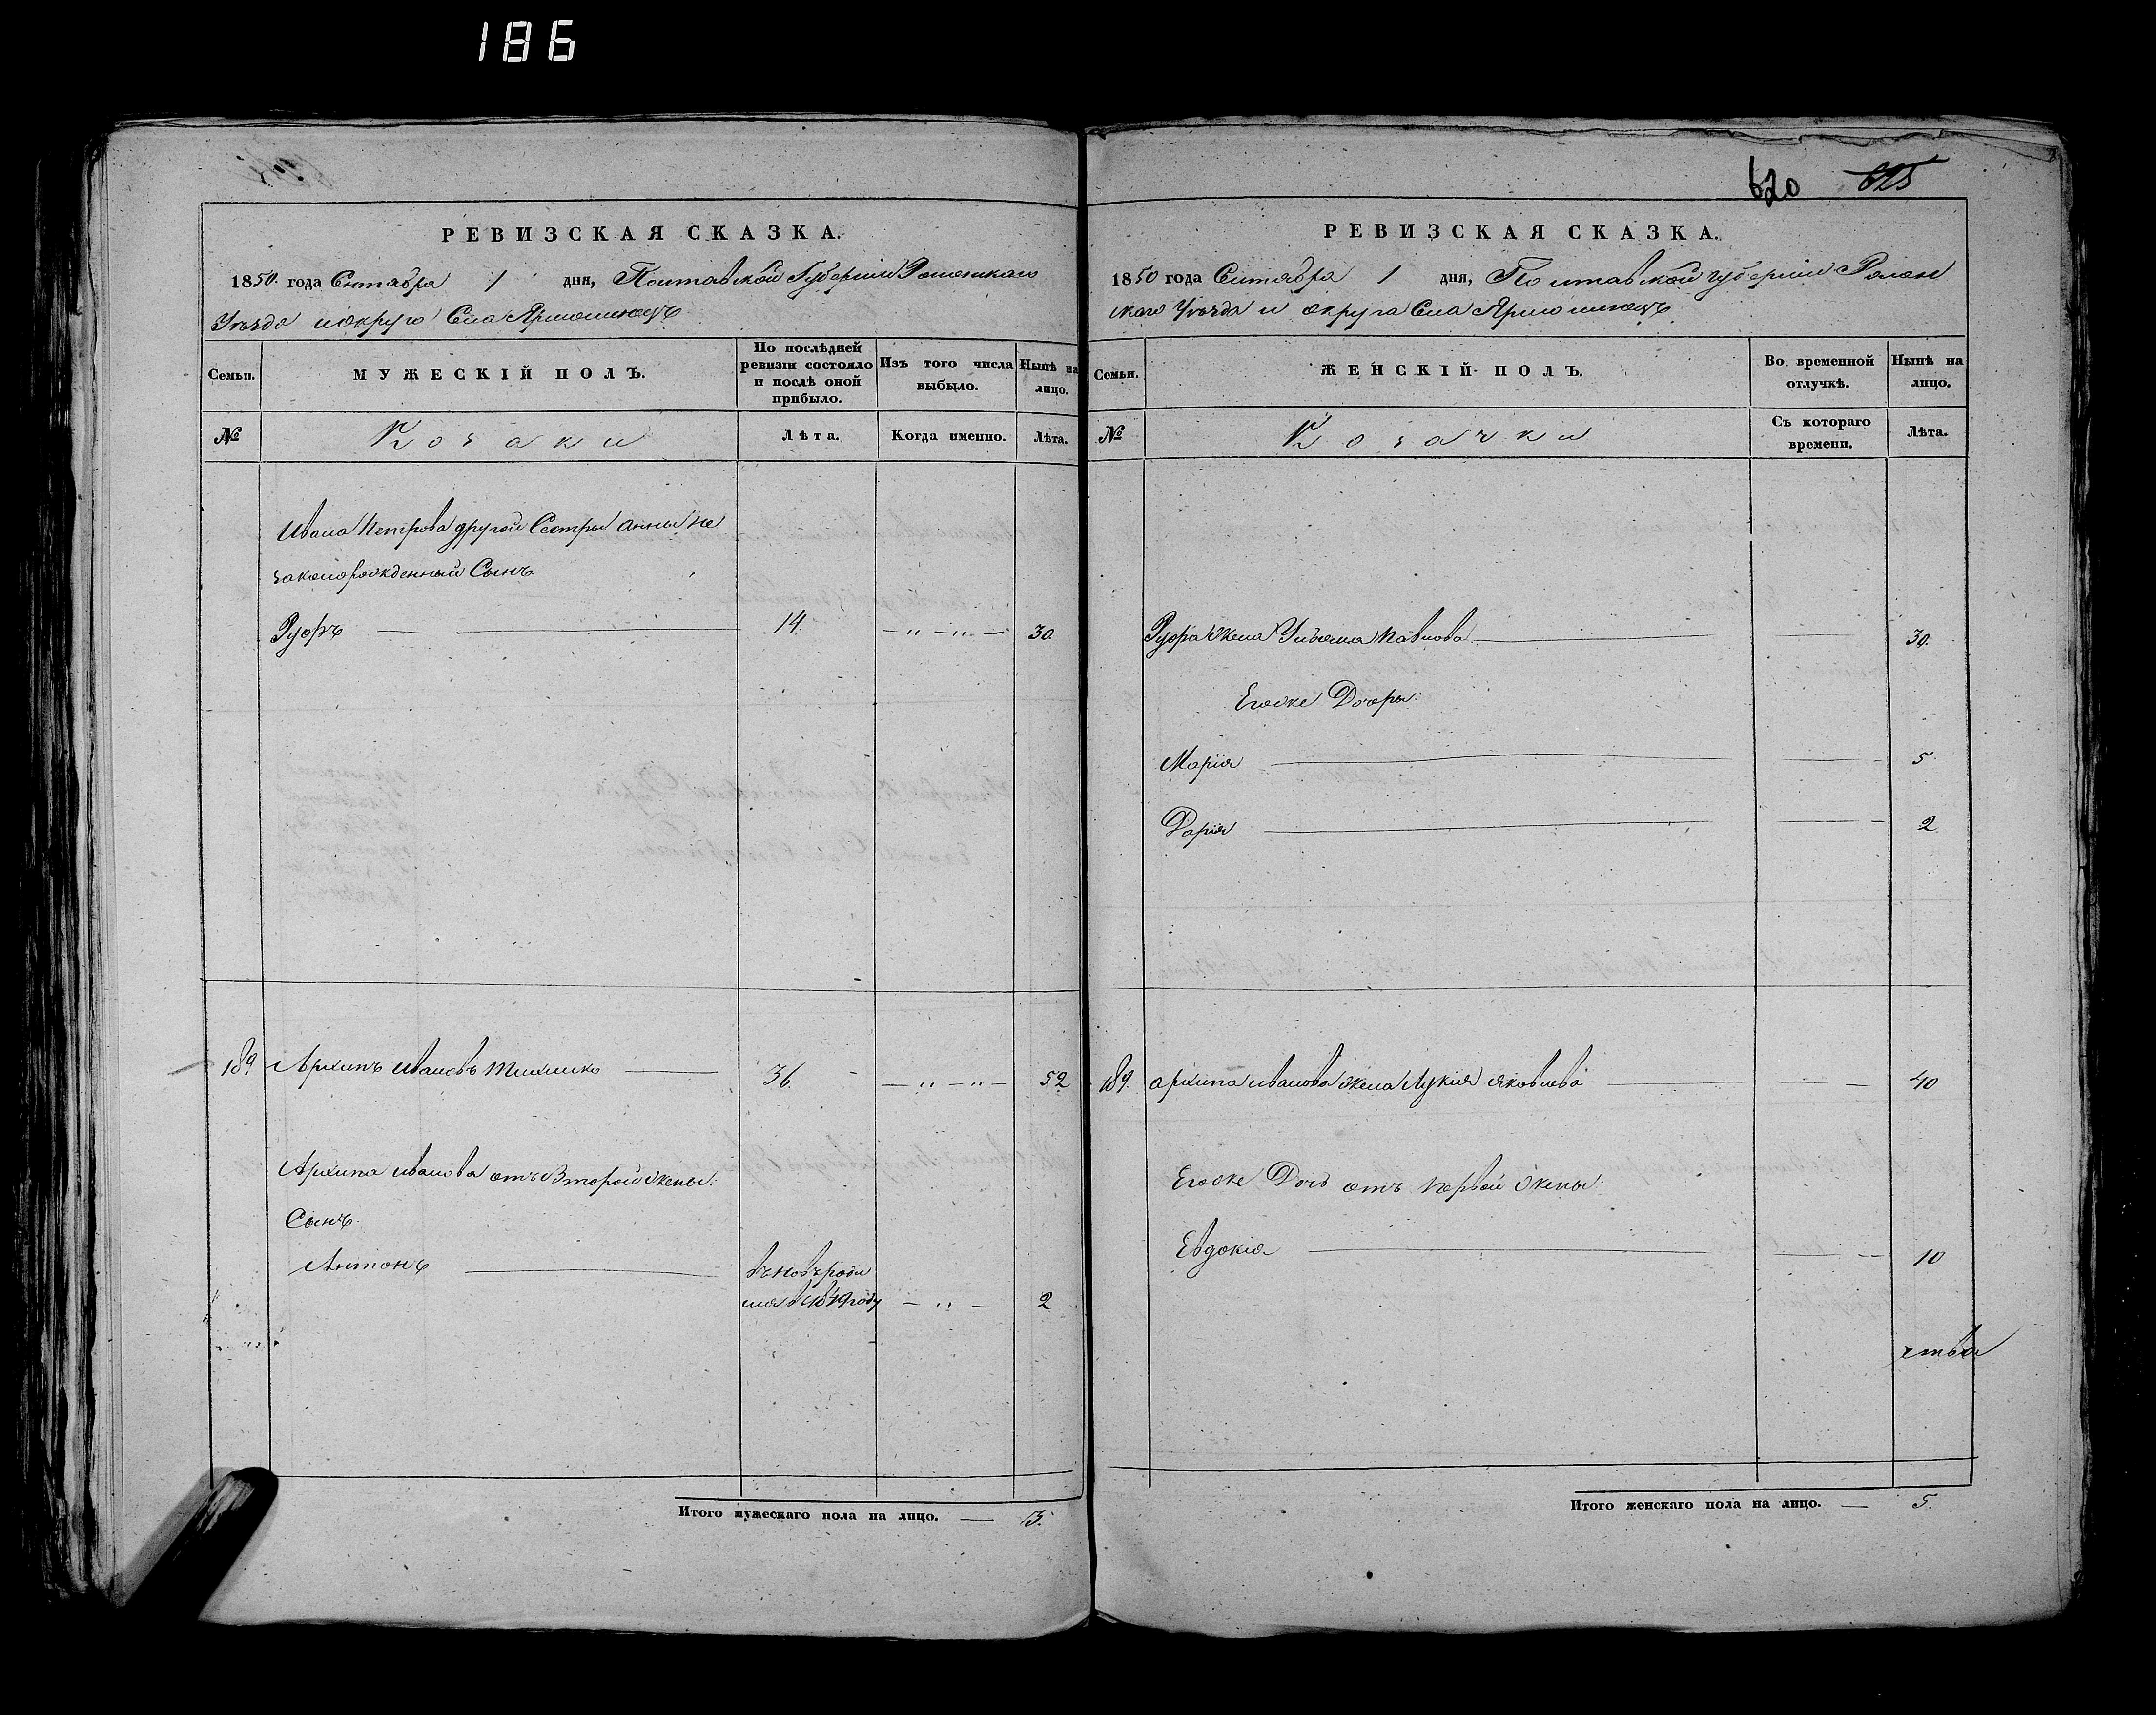 186
620 615
РЕВИЗСКАЯ СКАЗКА.
1850 года Сентября 1 дня, Полтавской Губернии Роменскаго
Уезда и округа Села Ярмолинецъ
Семьи.
МУЖЕСКІЙ ПОЛЪ.
По послѣдней ревизіи состояло и послѣ оной прибыло.
Изъ того числа выбыло.
Нынѣ на лицо.
№
Козаки
Лѣта.
Когда именно.
Лѣта.
Ивана Петрова другой Сестры Анны не
законорожденный Сынъ
Руфъ 14. 30
189 Архипъ Ивановъ 36. 52
Архипа Иванова отъ Второй жены:
Сынъ
Антонъ
въновь роди
лся в 1849 году 2
Итого мужескаго пола на лицо. 3.
РЕВИЗСКАЯ СКАЗКА.
1850 года Сентября 1 дня, Полтавской губернии Ромен
скаго Уезда и округа Села Ярмолинецъ
Семьи.
ЖЕНСКІЙ ПОЛЪ.
Во временной отлучкѣ.
Нынѣ на лицо.
№
Козачки
Съ котораго времени.
Лѣта.
Руфа жена Ульяна Павлова 30.
Егоже Дочеры:
Марія 5
Дарія 2
189. Архипа Иванова жена Лукия Яковлева 40
Егоже Дочь отъ первой жены:
Евдокія 10
Итого женскаго пола на лицо. 5.